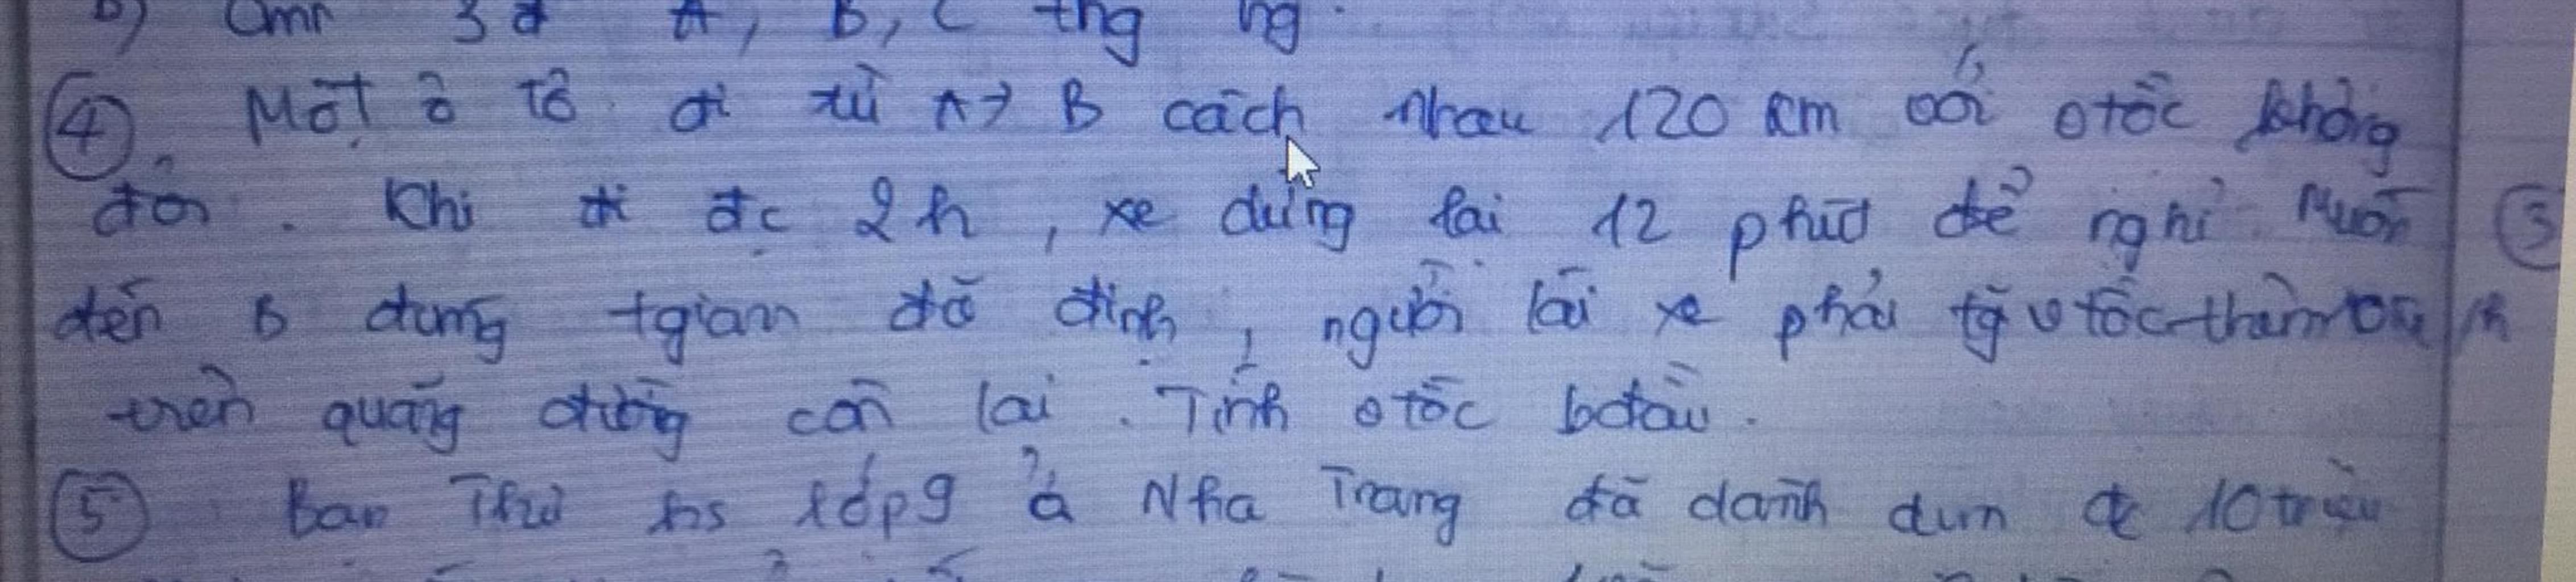 b) Cmr 3đ A, B, C thg hg.
④. Một ô tô đi từ A→ B cách nhau 120 km với vtốc không
đổi. Khi đi đc 2h, xe dừng lại 12 phút để nghỉ. Muốn ③
đến B đúng tgian đã định, người lái xe phải tg vtốc thêm /h
trên quãng đường còn lại. Tính vtốc bđầu.
⑤ Bạn Thư hs lớp 9 ở Nha Trang đã dành dụm đc 10 triệu